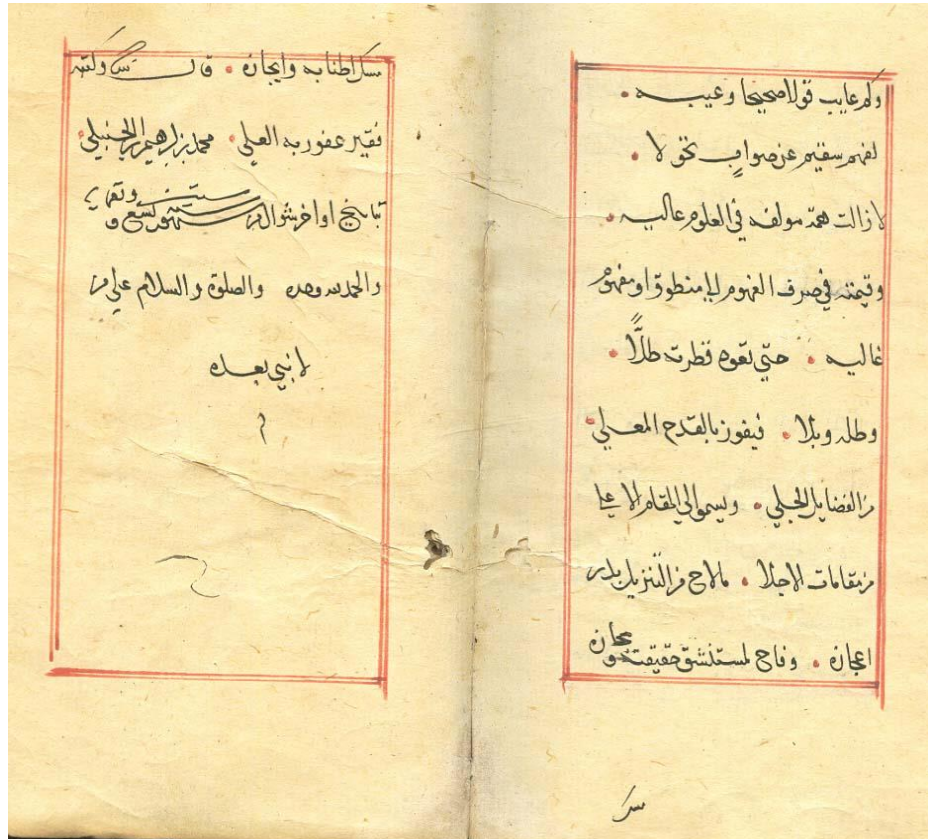 وكم عايب قولا صحيحا وعيبه
لفهم سقيم عن صواب تحولا
لا زالت همة مولفه في العلوم عاليه
وقيمته في صرف الفهوم الي منطوق او مفهوم
غاليه حتي تعود قطرته طلًّا
وطله وبلا فيفوز بالقدح المعلي
من الفضايل الجلي ويسمو الي المقام الاعلا
من مقامات الاجلا ما لاح من التنزيل بدر
اعجازه وفاح لمستنشق حقيقته ومجازه
مسك
مسك اطنابه وايجازه قال وكتبه
فقير عفو ربه العلي محمد بن ابرهيم الحنبلي
بتاريخ اواخر شوال من شهور تسع و
والحمد لله وحده والصلوة والسلام علي من
لا نبي بعده
م